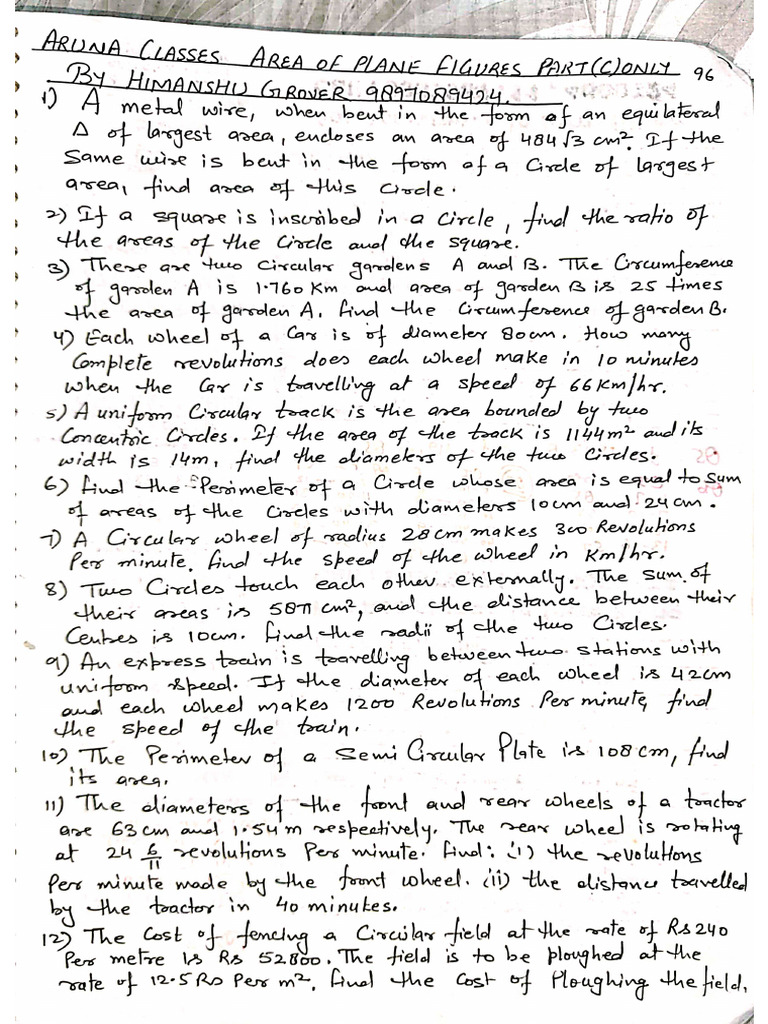 ARUNA CLASSES AREA OF PLANE FIGURES PART(C)ONLY 96
BY HIMANSHU GROVER 9897089424.
1) A metal wire, when bent in the form of an equilateral
Δ of largest area, encloses an area of 484√3 cm². If the
Same wire is bent in the form of a Circle of largest
area, find area of this Circle.
2) If a square is inscribed in a circle, find the ratio of
the areas of the Circle and the square.
3) There are two Circular gardens A and B. The Circumference
of garden A is 1.760 Km and area of garden B is 25 times
the area of garden A. find the Circumference of garden B.
4) Each wheel of a Car is of diameter 80cm. How many
Complete revolutions does each wheel make in 10 minutes
when the Car is travelling at a speed of 66 Km/hr.
5) A uniform Circular track is the area bounded by two
Concentric Circles. If the area of the track is 1144m² and its
width is 14m, find the diameters of the two Circles.
6) find the Perimeter of a Circle whose area is equal to Sum
of areas of the Circles with diameters 10cm and 24cm.
7) A Circular wheel of radius 28cm makes 300 Revolutions
Per minute, find the speed of the wheel in Km/hr.
8) Two Circles touch each other externally. The sum of
their areas is 58π cm², and the distance between their
Centres is 10cm. find the radii of the two Circles.
9) An express train is travelling between two stations with
uniform speed. If the diameter of each wheel is 42cm
and each wheel makes 1200 Revolutions Per minute, find
the speed of the train.
10) The Perimeter of a Semi Circular Plate is 108cm, find
its area.
11) The diameters of the front and rear wheels of a tractor
are 63cm and 1.54m respectively. The rear wheel is rotating
at 24 6/11 revolutions Per minute. find: (i) the revolutions
Per minute made by the front wheel. (ii) the distance travelled
by the tractor in 40 minutes.
12) The Cost of fencing a Circular field at the rate of Rs 240
Per metre is Rs 52800. The field is to be ploughed at the
rate of 12.5 Rs Per m², find the Cost of Ploughing the field.